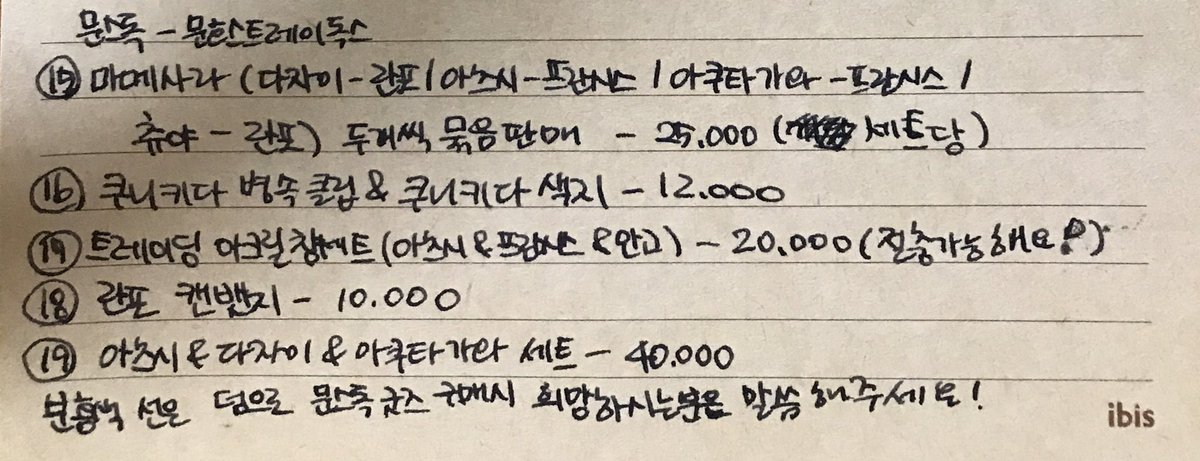 문스독 - 문호스트레이독스
⑮ 마메사라 (다자이-란포 / 아츠시-프란시스 / 아쿠타가와 -프란시스 /
츄야 - 란포) 두개씩 묶음판매 - 25.000 ( 세트당)
⑯ 쿠니키다 병속클립 & 쿠니키다 색지 - 12.000
⑰ 트레이딩 아크릴참세트 (아츠시&프란시스 &안고) - 20.000 (절충가능해요!)
⑱ 란포 캔뱃지 - 10.000
⑲ 아츠시 & 다자이 & 아쿠타가와 세트 - 40.000
분홍색 선은 덤으로 문스독 굿즈 구매시 희망하시는분은 말씀해주세요!
ibis